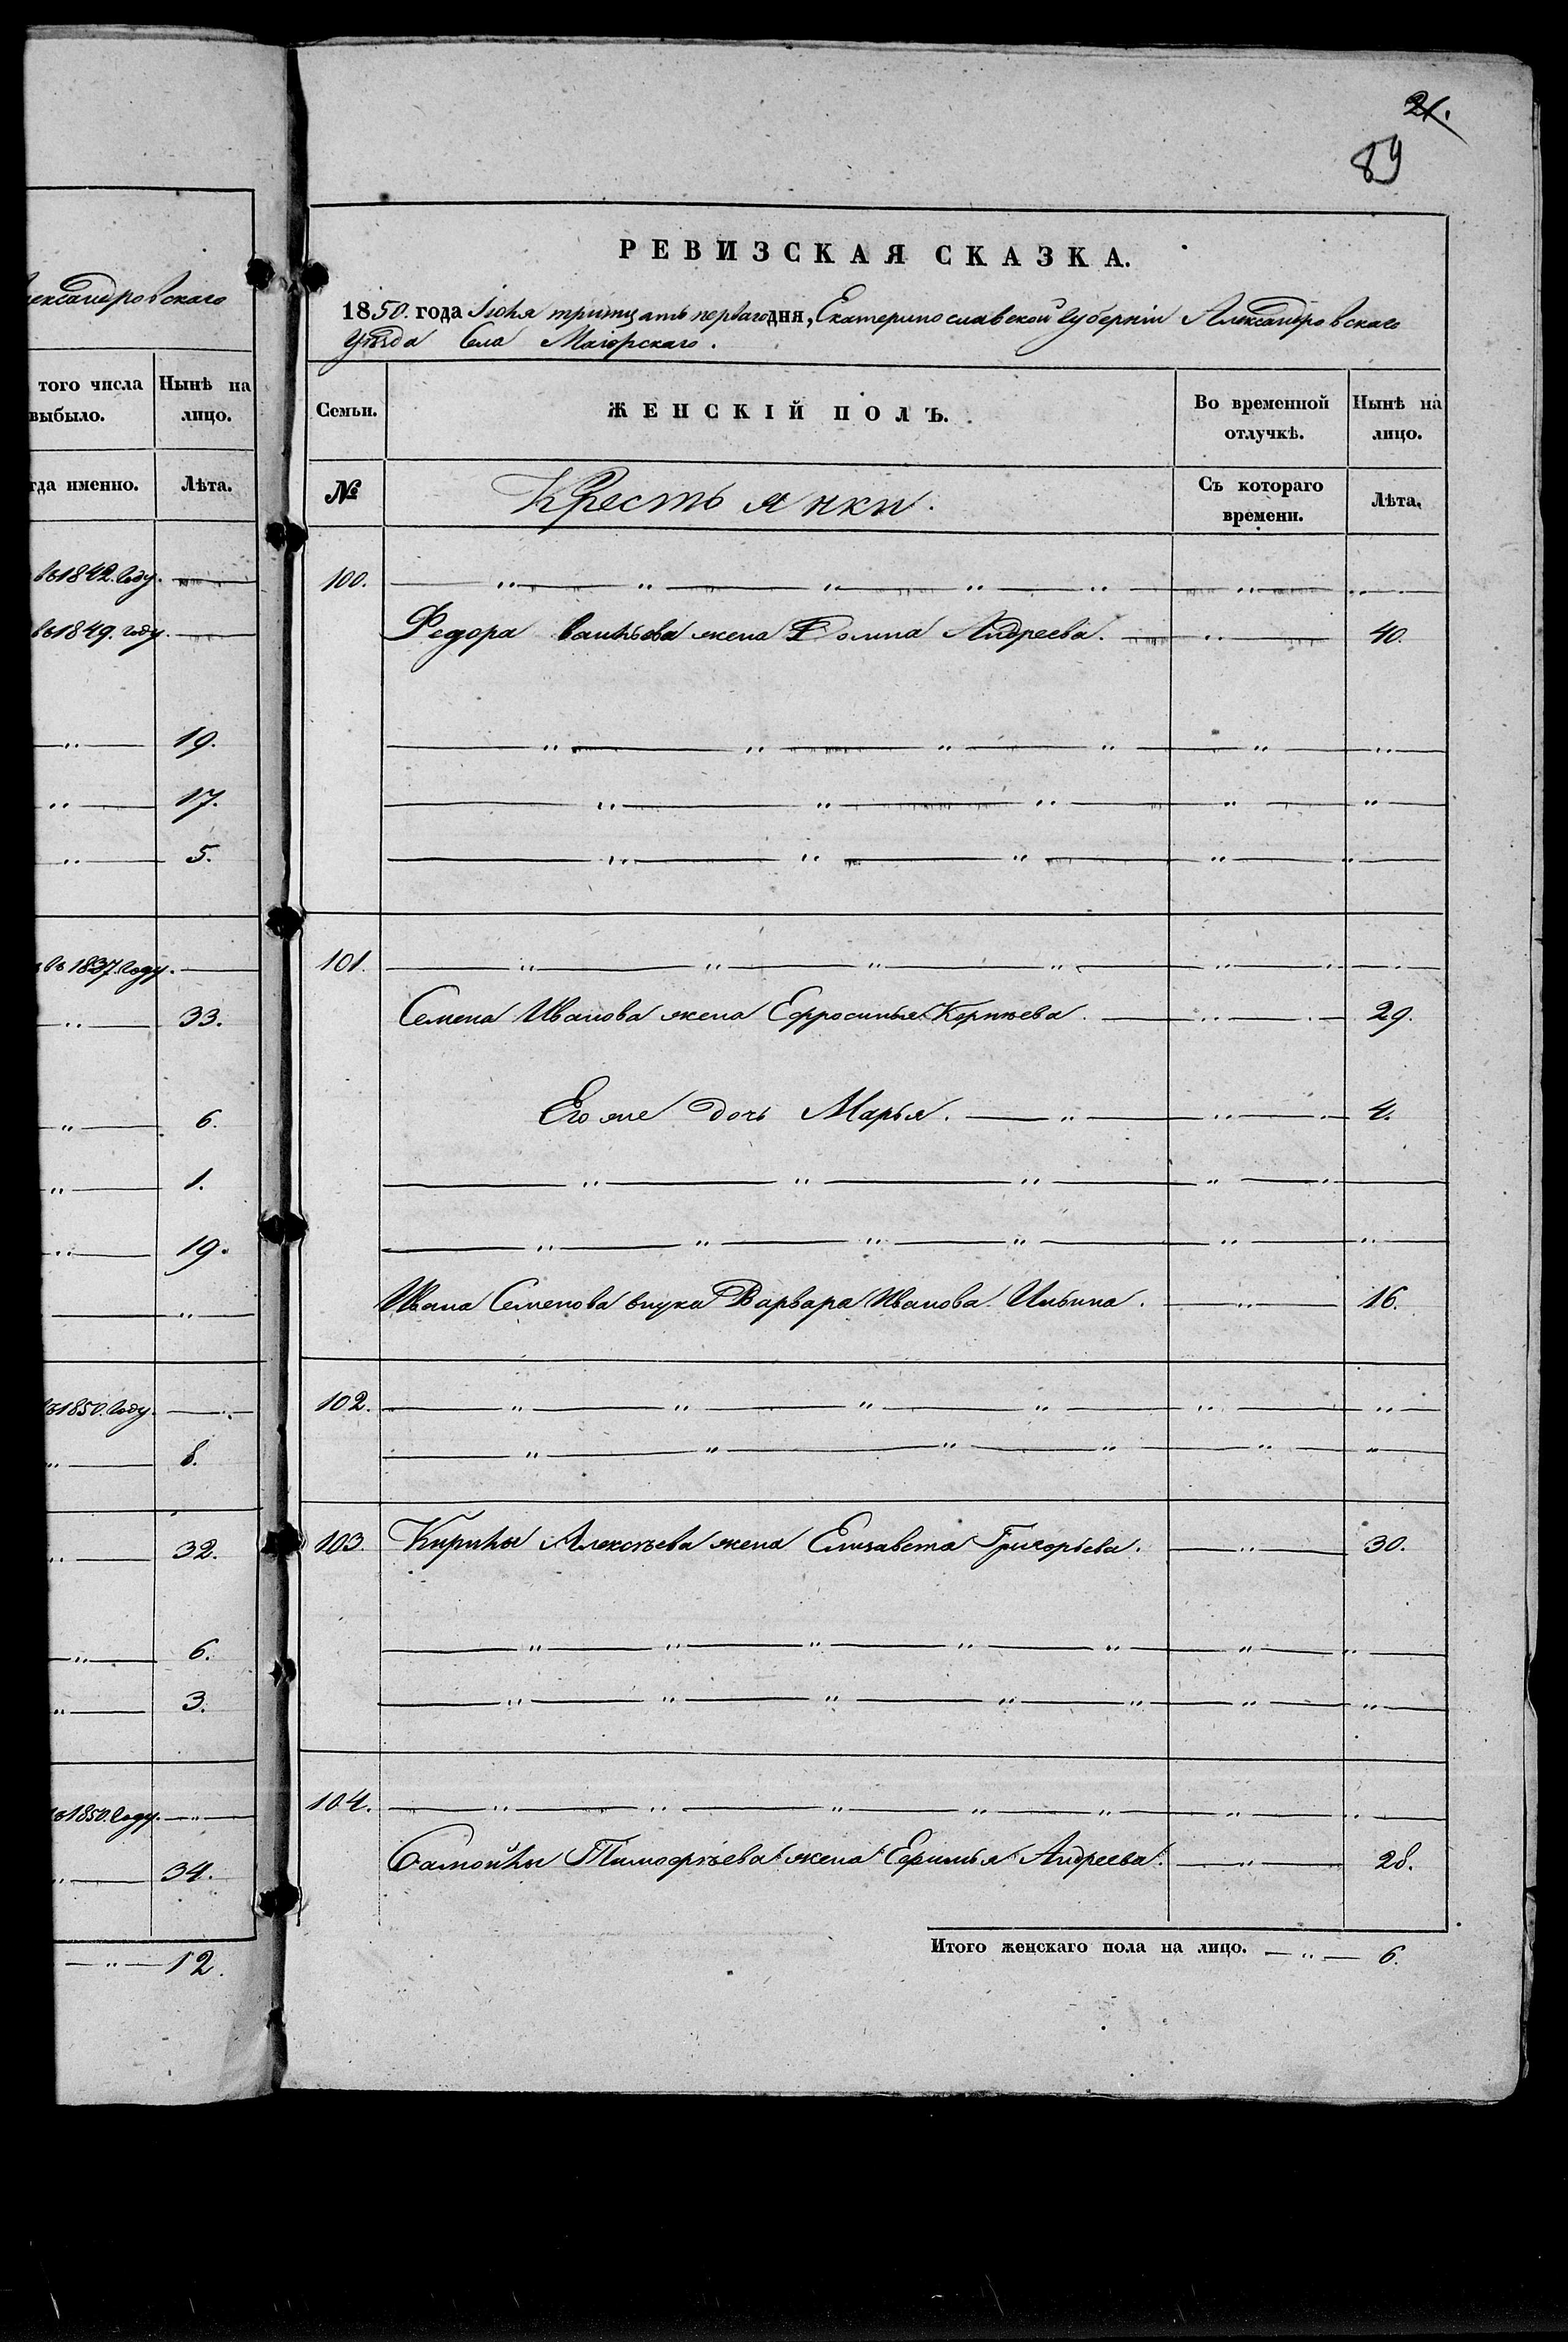 21.
89
лександровскаго
того числа
выбыло.
Нынѣ на
лицо.
гда именно.
Лѣта.
въ 1842. году.
въ 1849. году.
„ 19.
„ 17.
„ 5.
въ 1837. году.
„ 33.
„ 6.
„ 1.
„ 19.
„
въ 1850. году.
„ 8.
„ 32.
„ 6.
„ 3.
въ 1850. году. „
„ 34.
„ 12.
РЕВИЗСКАЯ СКАЗКА.
1850. года тритцать первагодня, Екатеринославской губерніи Александровскаго
уѣзда Села Маіорскаго.
Семьи.
ЖЕНСКІЙ ПОЛЪ.
Во временной
отлучкѣ.
Нынѣ на
лицо.
№
Крестьянки.
Съ котораго
времени.
Лѣта.
100. „ „ „ „ „ „ „
Федора жена Андреева. „ 40.
„ „ „ „ „ „
„ „ „ „ „
„ „ „ „ „
101. „ „ „ „ „ „
Семена Иванова жена Ефросинья Корнѣева. „ 29.
Его же дочь Марья. „ „ 4.
„ „ „ „ „
„ „ „ „ „ „
Ивана Семенова внука Варвара Иванова Ильина. „ 16.
102. „ „ „ „ „ „
„ „ „ „ „ „
103. Кирилы Алексѣева жена Елизавета Григорьева. „ 30.
„ „ „ „ „ „ „
„ „ „ „ „ „ „
104. „ „ „ „ „ „ „
Самойлы Тимофѣева жена Ефимья Андреева. „ 28.
Итого женскаго пола на лицо. „ 6.